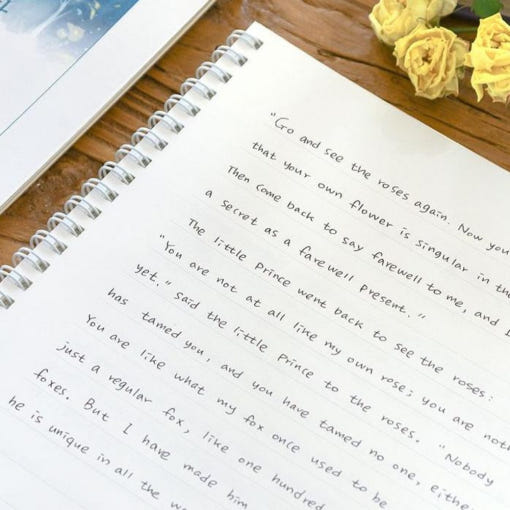 "Go and see the roses again. Now you
that your own flower is singular in the
Then come back to say farewell to me, and I
a secret as a farewell present."
The little prince went back to see the roses:
"You are not at all like my own rose; you are noth
yet." said the little Prince to the roses. "Nobody
has tamed you, and you have tamed no one, eithe
You are like what my fox once used to be
just a regular fox, like one hundred
foxes. But I have made him
he is unique in all the w